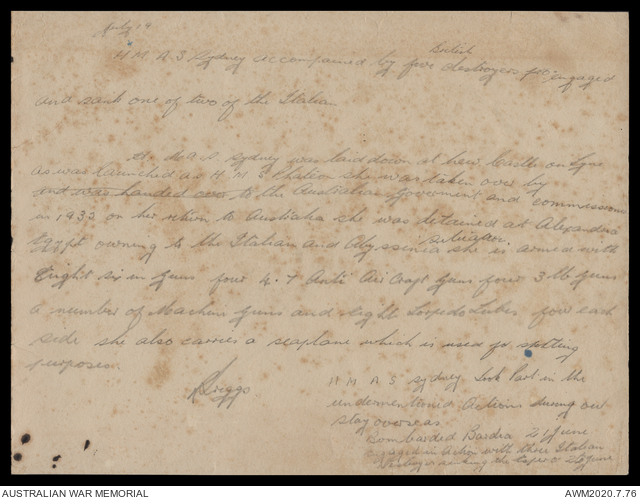 July 19
British
H M A S Sydney accompained by five destroyers engaged
and sank one of two of the Italian
H. M A S. Sydney was laid down at New Castle on Tyne
as was Launched as H. M S Phaeton she was taken over by
and was handed over to the Australian Government and commissioned
in 1933 on her return to Australia she was detained at Alexandria
situation.
Egypt owning to the Italian and Abyssenia she is armed with
Eight six in Guns four 4.7 Anti Air Craft Guns four 3 lb Guns
a number of Machine Guns and eight Torpedo Tubes four each
side she also carries a seaplane which is used for spotting
purposes.
Briggs
H M A S Sydney took Part in the
undermentioned Actions during our
stay overseas
Bombarded Bardia 21 June
engaged in Action with three Italian
28 June
AUSTRALIAN WAR MEMORIAL
AWM2020.7.76